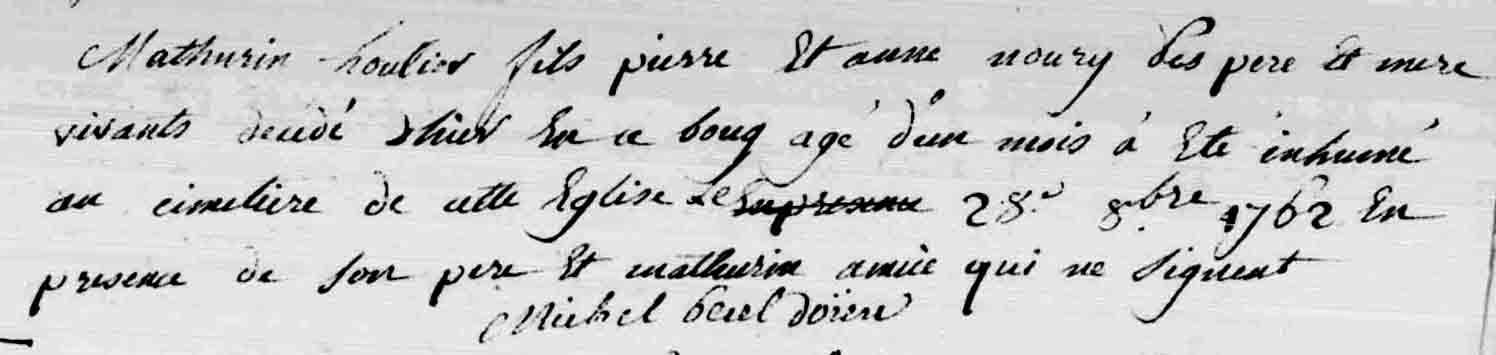 Mathurin houlier fils pierre Et anne noury ses pere Et mere
vivants decedé d'hier En ce bourg agé d'un mois à Eté inhumé
au cimetiere de cette Eglise Le 28.e 8.bre 1762 En
presence de son pere Et mathurin amice qui ne signent
Michel